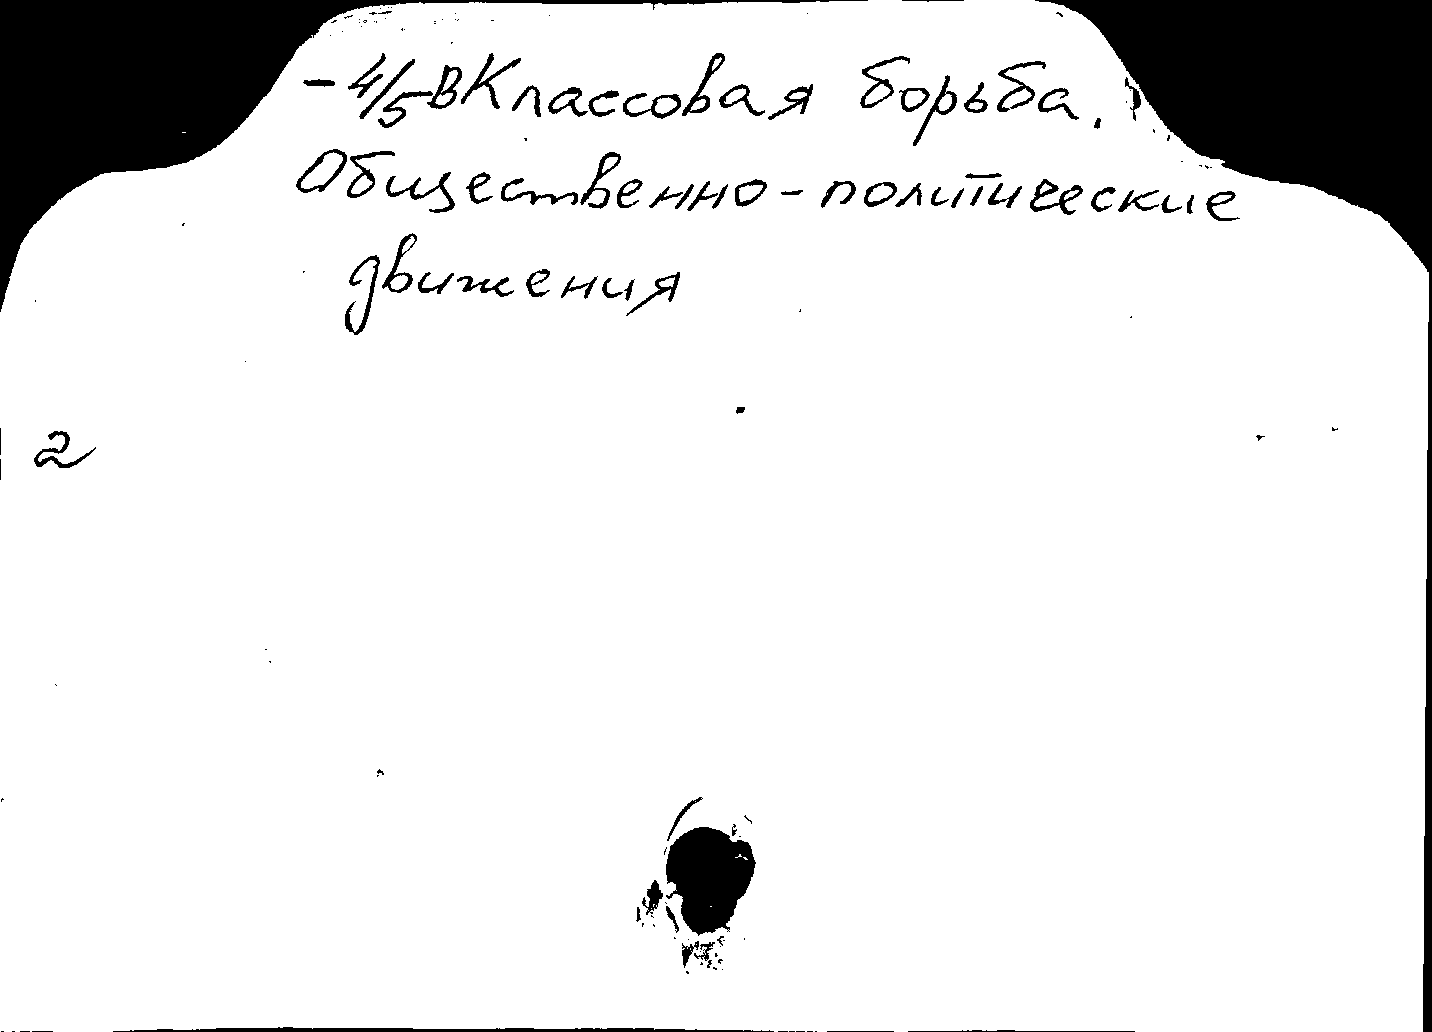 -4/5 В Классовая борьба.
Общественно-политические
движения
2